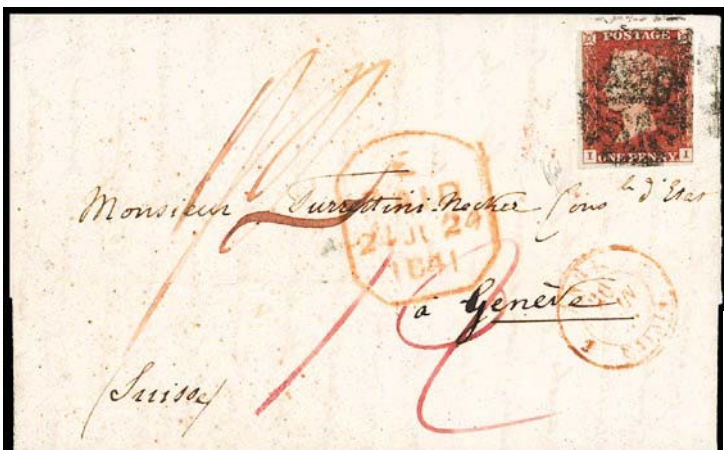 POSTAGE
I ONE PENNY I
PAID
24 JU 24
1841
Monsieur Turrettini-Necker Cons.le d'Etat
à Genève
(Suisse)